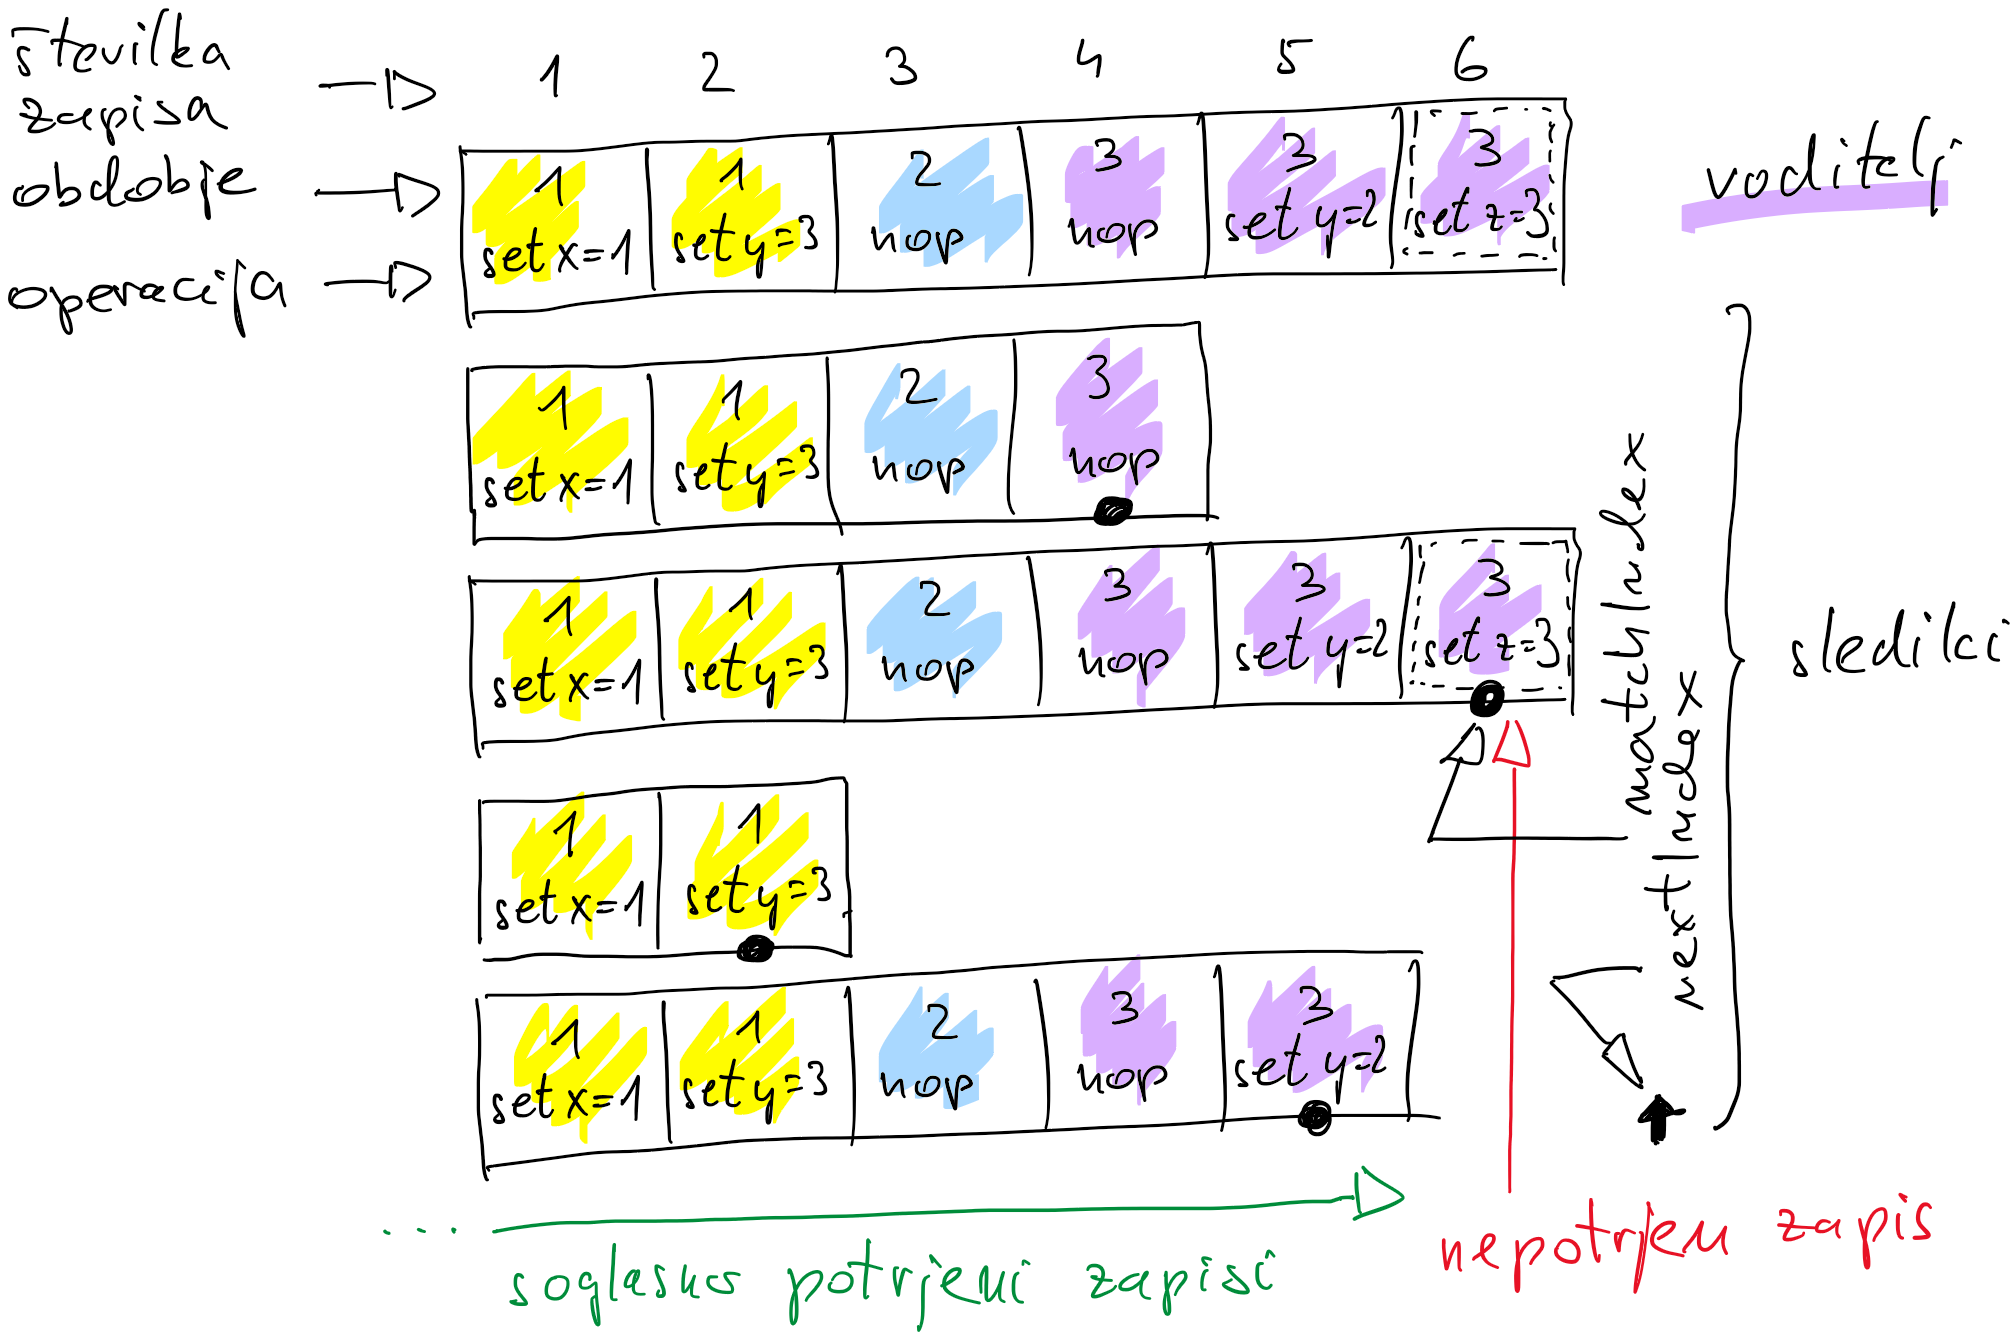 številka
zapisa
obdobje
operacija
1 2 3 4 5 6
1 1 2 3 3 3
set x=1 set y=3 nop nop set y=2 set z=3
voditelj
1 1 2 3
set x=1 set y=3 nop nop
1 1 2 3 3 3
set x=1 set y=3 nop nop set y=2 set z=3
1 1
set x=1 set y=3
1 1 2 3 3
set x=1 set y=3 nop nop set y=2
matchIndex
nextIndex
sledilci
... soglasno potrjeni zapisi
nepotrjen zapis